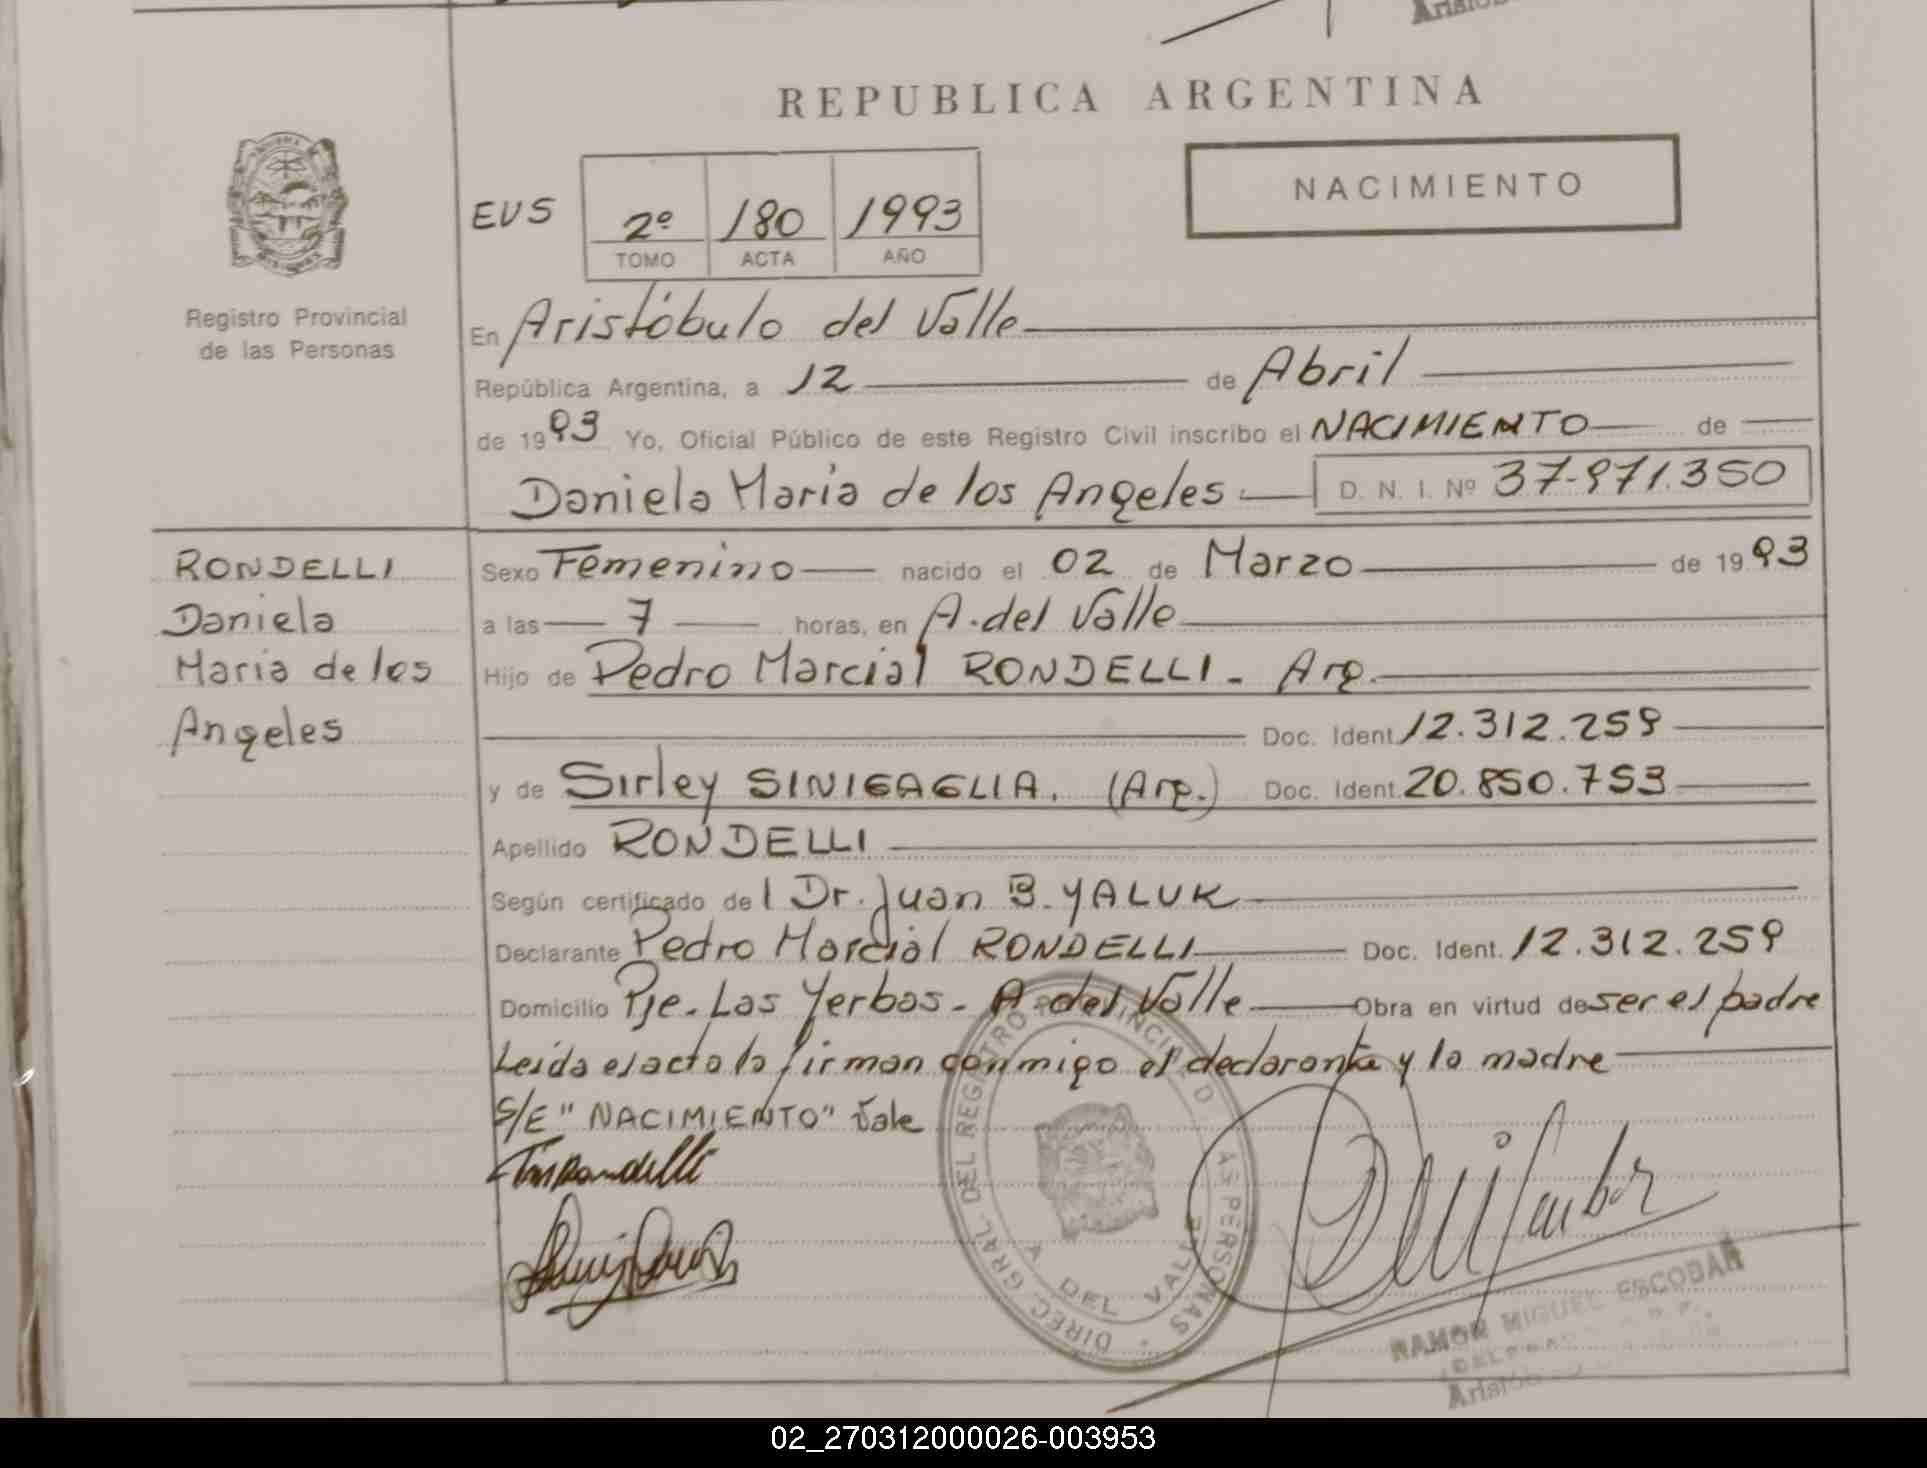 REPUBLICA ARGENTINA
NACIMIENTO
EUS 2º 180 1993
TOMO ACTA AÑO
Registro Provincial
de las Personas
En Aristóbulo del Valle
República Argentina, a 12 de Abril
de 1993 Yo, Oficial Público de este Registro Civil inscribo el NACIMIENTO de
Daniela María de los Angeles D. N. I. Nº 37.971.350
RONDELLI
Daniela
María de los
Angeles
Sexo Femenino nacido el 02 de Marzo de 1993
a las 7 horas, en A. del Valle
Hijo de Pedro Marcial RONDELLI - Arg.
Doc. Ident. 12.312.259
y de Sirley SINIGAGLIA. (Arg.) Doc. Ident. 20.850.753
Apellido RONDELLI
Según certificado del Dr. Juan B. YALUK
Declarante Pedro Marcial RONDELLI Doc. Ident. 12.312.259
Domicilio Pje. Las Yerbas - A. del Valle Obra en virtud de ser el padre
Leída el acta la firman conmigo el declarante y la madre
S/E "NACIMIENTO" Vale
DIREC. GRAL. DEL REGISTRO PROVINCIAL D LAS PERSONAS
A DEL VALLE
RAMON MIGUEL ESCOBAR
02_270312000026-003953